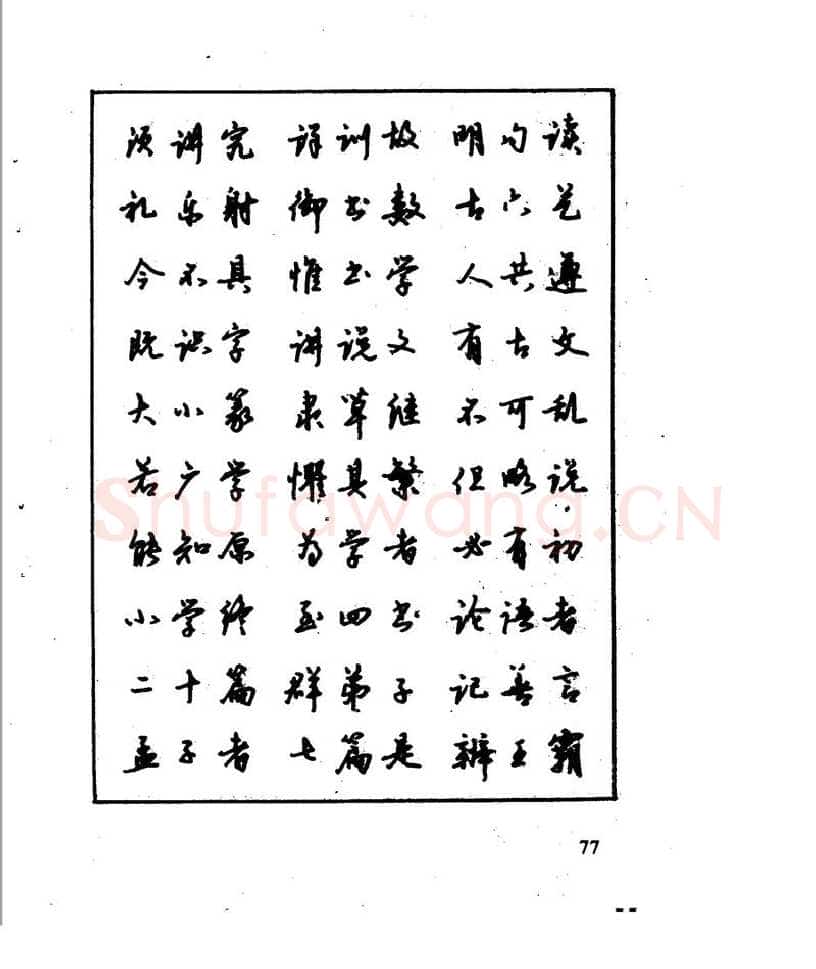 须讲究 详训故 明句读
礼乐射 御书数 古六艺
今不具 惟书学 人共遵
既识字 讲说文 有古文
大小篆 隶草继 不可乱
若广学 惧其繁 但略说
能知原 为学者 必有初
小学终 至四书 论语者
二十篇 群弟子 记善言
孟子者 七篇是 辨王霸
77
Shufawang.CN